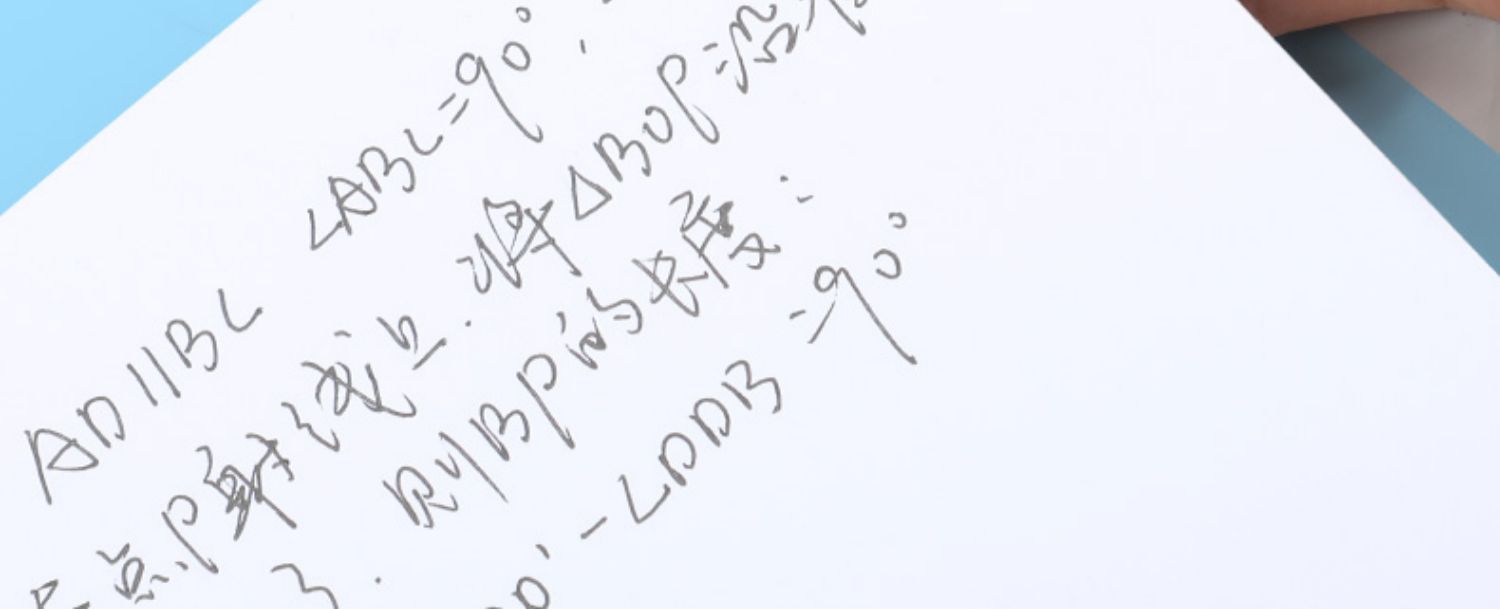 AD∥BC ∠ABC=90°.
点P射线上.将△BOP沿
3. 则BP的长度:
0°-∠DDB=90°